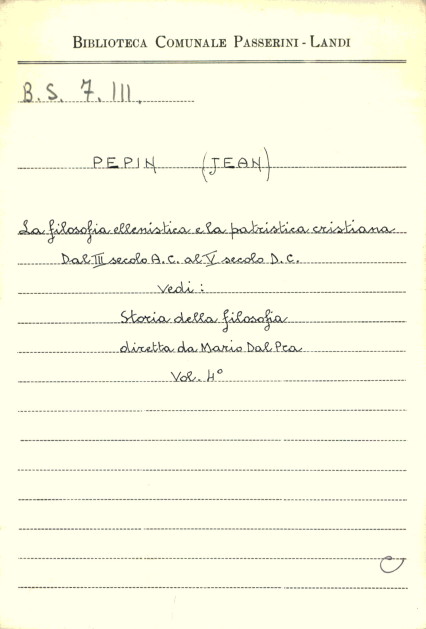 BIBLIOTECA COMUNALE PASSERINI - LANDI
B. S. 7. III.
PEPIN (JEAN)
La filosofia ellenistica e la patristica cristiana
Dal III secolo A.C. al V secolo D.C.
Vedi :
Storia della filosofia
diretta da Mario Dal Pra
Vol. 4°